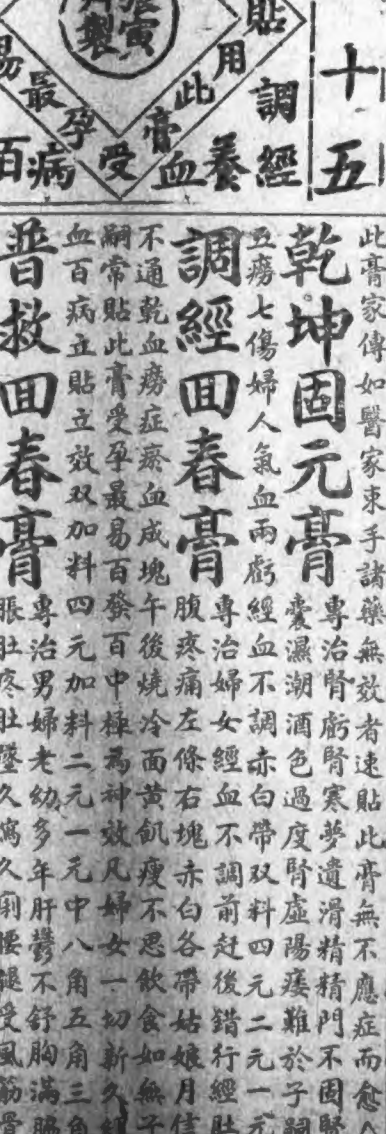 十五
貼
調經
用
養
此
血
膏
受
孕
最
易
病
百
寅
製
此膏家傳如醫家束手諸藥無效者速貼此膏無不應症而愈
乾坤固元膏
專治腎虧腎寒夢遺滑精精門不固腎
囊濕潮酒色過度腎虛陽痿難於子嗣
五癆七傷婦人氣血兩虧經血不調赤白帶双料四元二元一元
調經回春膏
專治婦女經血不調前赶後錯行經肚
腹疼痛左條右塊赤白各帶姑娘月信
不通乾血癆症瘀血成塊午後燒冷面黄飢瘦不思飲食如無子
嗣常貼此膏受孕最易百發百中極為神效凡婦女一切新久經
血百病立貼立效双加料四元加料二元一元中八角五角三角
普救回春膏
專治男婦老幼多年肝鬱不舒胸滿
脹肚疼肚墜久瀉久痢腰腿受風筋骨